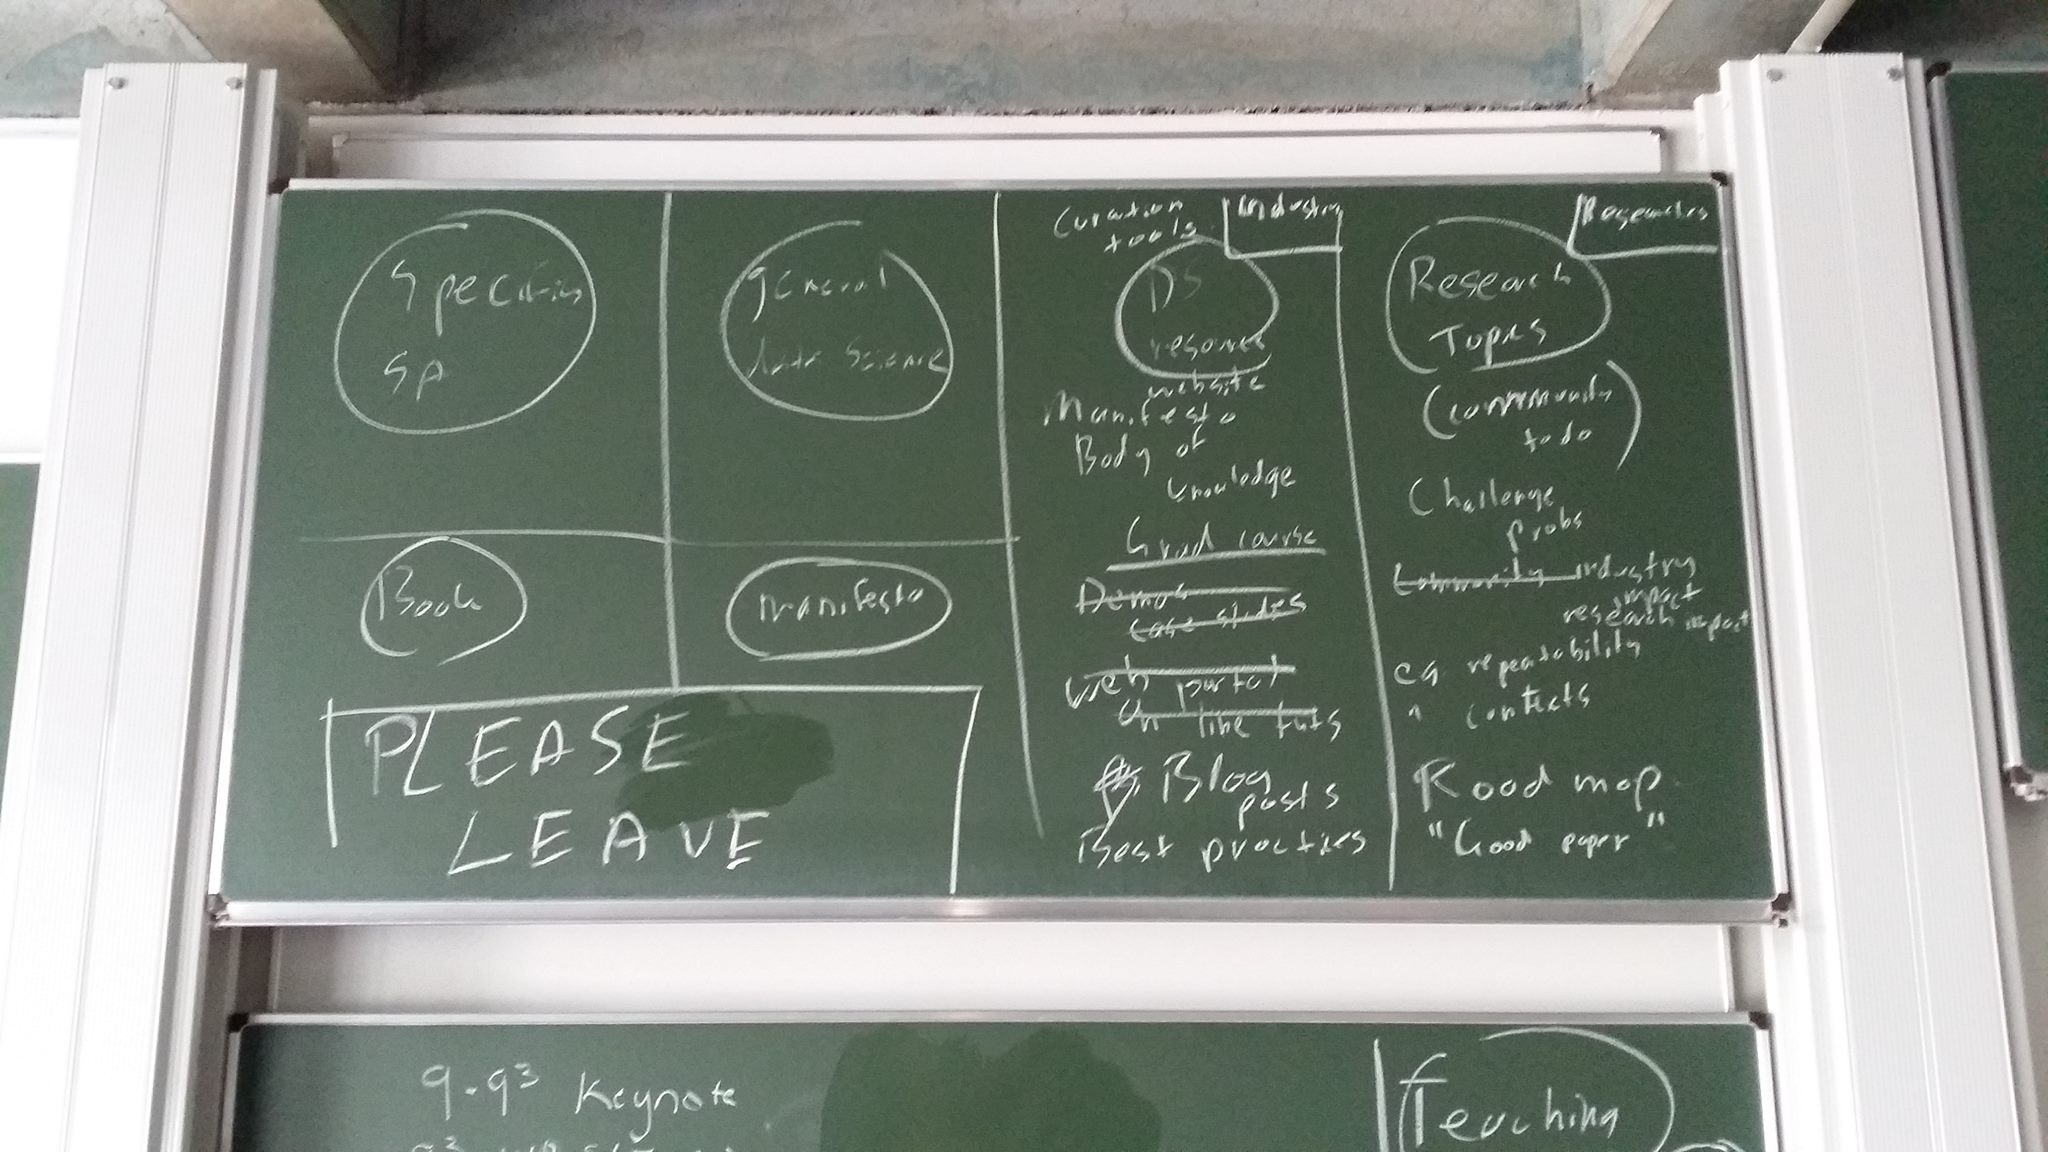 Specifics
SA
general
data science
Book
manifesto
PLEASE
LEAVE
Curation
tools
Industry
DS
resource
website
Manifesto
Body of
knowledge
Grad course
Demos
case studies
Web portal
On line tuts
Blog
posts
Best practices
Research
Topics
(community
to do)
Challenge
probs
Community industry
impact
research impact
eg. repeatability
" contexts
Road map
"Good paper"
9-9³ Keynote
Teaching